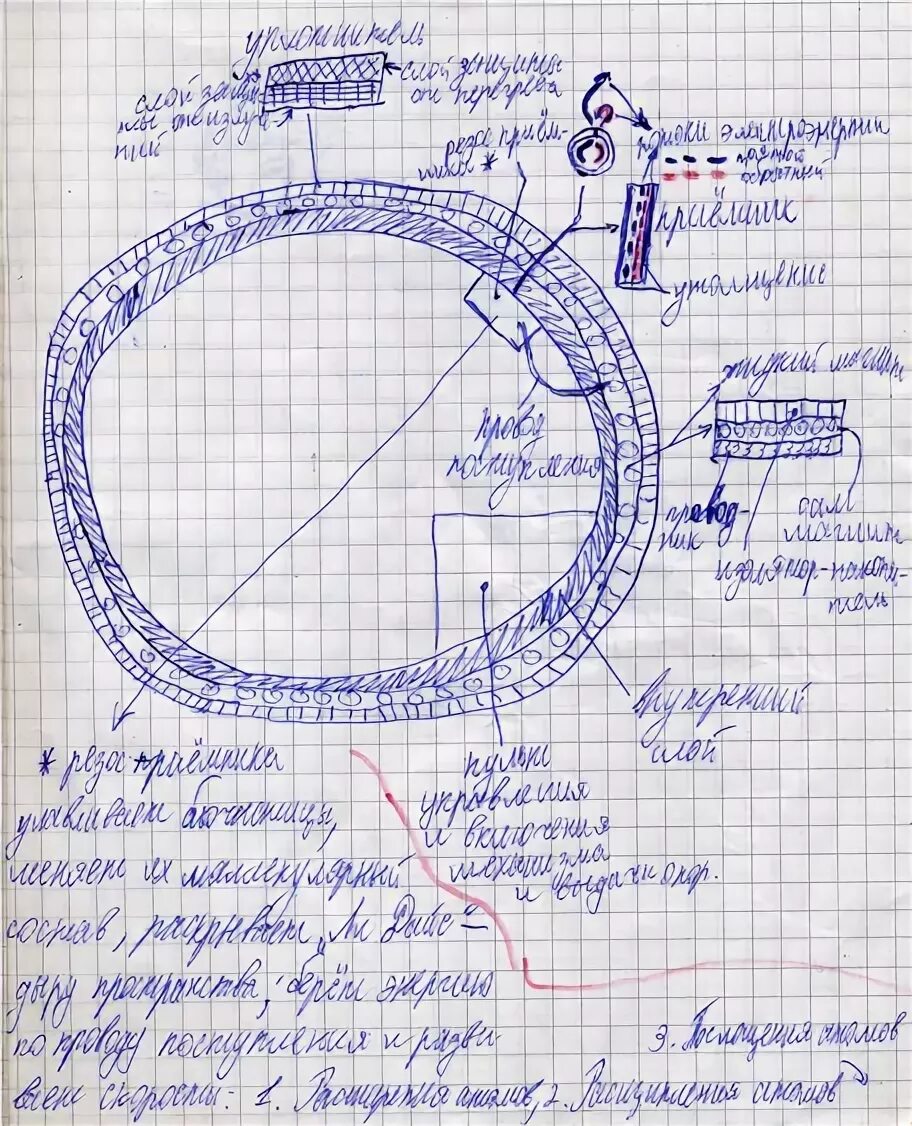 уплотнитель
слой защи-
ты от излу-
чений
слой защиты
от перегрева
резос приём-
ника *
потоки электроэнергии
прямой
обратный
приёмник
утолщение
жидкий магнит
провод
поступления
провод-
ник
сам
магнит
изолятор-накопи-
тель
внутренний
слой
пульт
управления
и включения
механизма
и выдачи опр.
* резос-приёмника
улавливает
меняет их молекулярный
состав, раскрывает
дыру пространства, берёт энергию
по проводу поступления и разви-
вает скорость: 1. Расширения атомов, 2. Расщепления атомов
3. Поглощения атомов